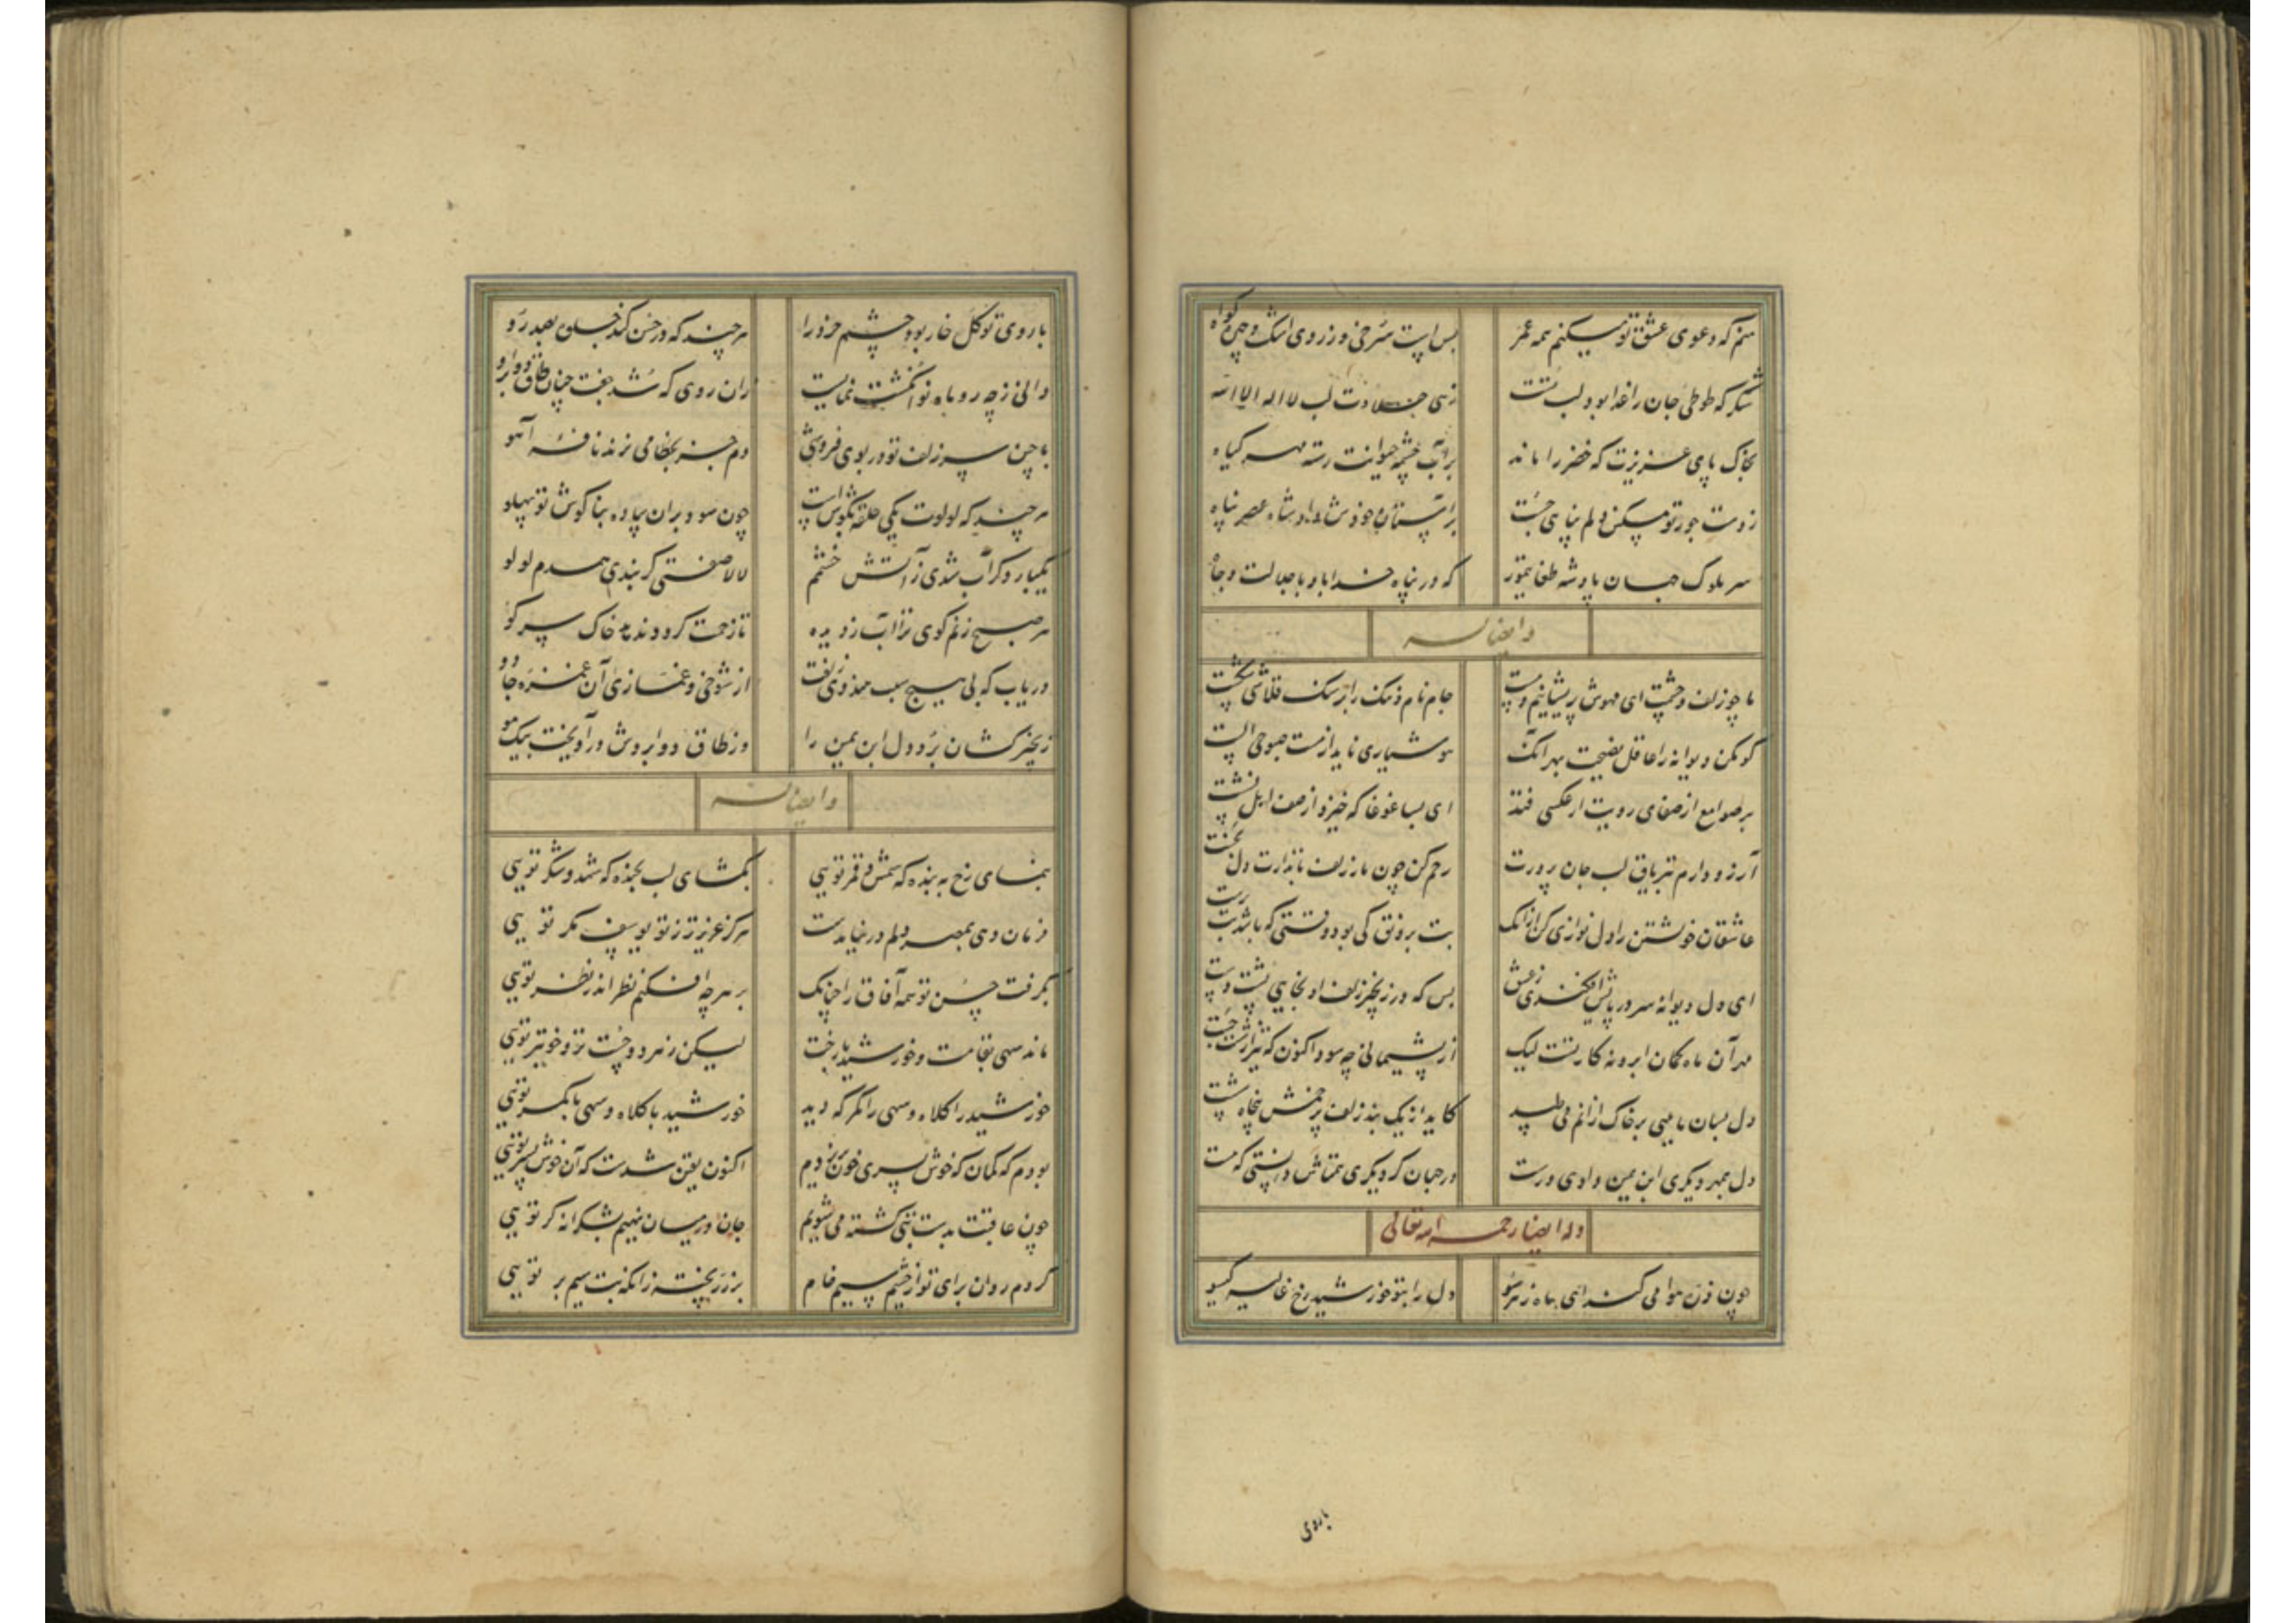 منم که دعوی عشق تو میکنم همه عمر بس است سرخی و زردی اشک و چهره گواه
شکر که طوطی جان را غذا بود لب تست زهی حلاوت لب لا اله الا الله
بخاک پای عزیزت که خضر را ماند بر آب چشمه حیوانت رسته مهر گیاه
ز دست جور تو مسکین دلم پناهی جست بر آستان خود شاه عصر پناه
سر ملوک جهان پادشه طغایتمور که در پناه خدا باد با جلالت و جاه
و ایضا له
ما چو زلف و چشمت ای مهوش پریشانیم و مست جام نام و ننگ را بر سنگ قلاشی شکست
گو مکن دیوانه را عاقل نصیحت بهر آنک هوشیاری ناید از مست صبوحی الست
بر صوامع از صفای رویت ار عکسی فتد ای بسا غوغا که خیزد از صف اهل نشست
آرزو دارم تریاق لب جان پرورت رحم کن چون مار زلف تابدارت دل بخست
عاشقان خویشتن را دل نوازی کن از آنک بت برونق کی بود وقتی که باشد بت پرست
ای دل دیوانه سر در پاش افکندی ز عشق بس که در زنجیر زلف او بخایی پشت دست
مهر آن ماه کمان ابرو نه کار تست لیک از پشیمانی چه سود اکنون که تیر از شست جست
دل بسان ماهیی بر خاک از آنم می طپد کاید از یک بند زلف پر خمش پنجاه شست
دل بمهر دیگری ابن یمین دادی درست در جهان گر دیگری همتاش دانستی که هست
وله ایضا رحمه الله تعالی
چون وزن هوا می کند ای ماه ز هر سو دل را بتو خورشید رخ غالیه گیسو
با روی
با روی تو گل خار بود چشم خرد را هر چند که در حسن کند جلوه بصد رو
دانی ز چه رو ماه نو انگشت نمایست زان روی که شد جفت چنان طاق دو ابرو
با چین سر زلف تو در بوی فروشی دم جز بخطا می نزند نافه آهو
هر چند که لولوت یکی حلقه بگوش است چون سود بران ساده بناگوش تو پهلو
یکبار دگر آب شدی ز آتش خشمم لالا صفتی گر بندی همدم لولو
هر صبح زنم کوی ترا آب ز دیده تا زحمت گردد ندهد خاک سر کو
دریاب که بی هیچ سبب میزودی رفت از شوخی و غمازی آن غمزه جادو
زنجیر کشان برد دل ابن یمین را وز طاق دو ابروش در آویخت بیک مو
و ایضا له
بنمای رخ به بنده که شمس و قمر تویی بگشای لب بخنده که شهد و شکر تویی
فرمان دهی بمصر دلم در نیامدست هرگز عزیزتر ز تو یوسف مگر تویی
بگرفت حسن تو همه آفاق را چنانک بر هرچه افکنم نظر اندر نظر تویی
ماند سهی بقامت و خورشید با رخت لیکن ز هر دو چست تر و خوبتر تویی
خورشید را کلاه و سهی را کمر که دید خورشید با کلاه و سهی با کمر تویی
بودم که گمان که خوش پسری خون بریزدم اکنون یقین شدست که آن خوش پسر تویی
چون عاقبت بدست بتی کشته می شویم جان در میان نهیم بشکرانه گر تویی
کردم روان برای تو از چشم سیم خام بر زر پخته زانکه بت سیم بر تویی